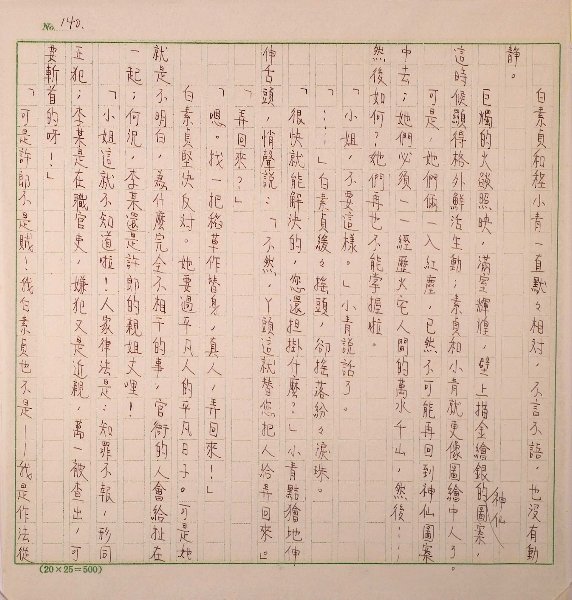 No. 140.
白素貞和程小青一直默々相對，不言不語，也沒有動
靜。
巨燭的火燄照映，滿室輝煌，壁上描金繪銀的神仙圖案，
這時候顯得格外鮮活生動；素貞和小青就更像圖繪中人了。
可是，她們倆一入紅塵，已然不可能再回到神仙圖案
中去；她們必須一一經歷火宅人間的萬水千山，然後……
然後如何？她們再也不能掌握啦。
「小姐，不要這樣。」小青說話了。
「……」白素貞緩々搖頭，卻搖落紛々淚珠。
「很快就能解決的，您還担掛什麼？」小青點獪地伸
伸舌頭，悄聲說：「不然，丫頭這就替您把人給弄回來。」
「弄回來？」
「嗯。找一把稻草作替身，真人，弄回來！」
白素貞堅決反对。她要過平凡人的平凡日子。可是她
就是不明白，為什麼完全不相干的事，官衙的人會給扯在
一起；何況，李某還是許郎的親姐丈哩！
「小姐這就不知道啦！人家律法是：知罪不報，形同
正犯；李某是在職官吏，嫌犯又是近親，萬一被查出，可
要斬首的呀！」
「可是許郎不是賊！我白素貞也不是——我是作法從
(20×25=500)